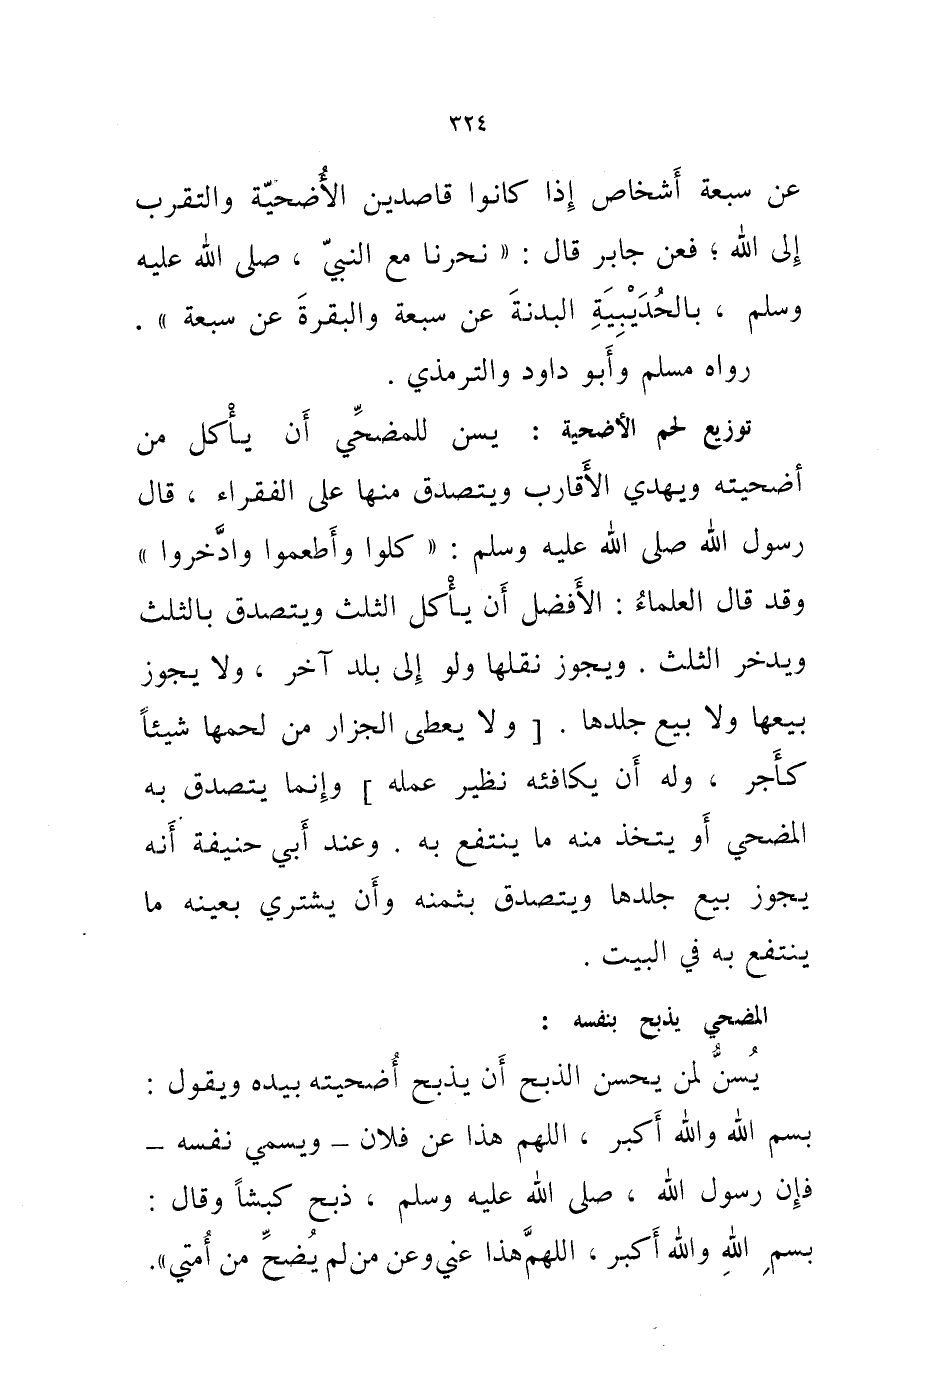 ٣٢٤
عن سبعة أَشخاص إِذا كانوا قاصدين الأُضحيّة والتقرب
إِلى الله ؛ فعن جابر قال : « نحرنا مع النبيّ ، صلى الله عليه
وسلم ، بالحُدَيْبِيَةِ البدنةَ عن سبعة والبقرةَ عن سبعة » .
رواه مسلم وأَبو داود والترمذي .
توزيع لحم الأضحية : يسن للمضحِّي أَن يأْكل من
أُضحيته ويهدي الأَقارب ويتصدق منها على الفقراء ، قال
رسول الله صلى الله عليه وسلم : « كلوا وأَطعموا وادَّخروا »
وقد قال العلماءُ : الأَفضل أَن يأْكل الثلث ويتصدق بالثلث
ويدخر الثلث . ويجوز نقلها ولو إِلى بلد آخر ، ولا يجوز
بيعها ولا بيع جلدها . [ ولا يعطى الجزار من لحمها شيئاً
كأَجر ، وله أَن يكافئه نظير عمله ] وإِنما يتصدق به
المضحي أَو يتخذ منه ما ينتفع به . وعند أَبي حنيفة أَنه
يجوز بيع جلدها ويتصدق بثمنه وأَن يشتري بعينه ما
ينتفع به في البيت .
المضحي يذبح بنفسه :
يُسنُّ لمن يحسن الذبح أَن يذبح أُضحيته بيده ويقول :
بسم الله والله أَكبر ، اللهم هذا عن فلان – ويسمي نفسه –
فإِن رسول الله ، صلى الله عليه وسلم ، ذبح كبشاً وقال :
بسمِ اللهِ والله أَكبر ، اللهمَّ هذا عني وعن من لم يُضحِّ من أُمتي » .